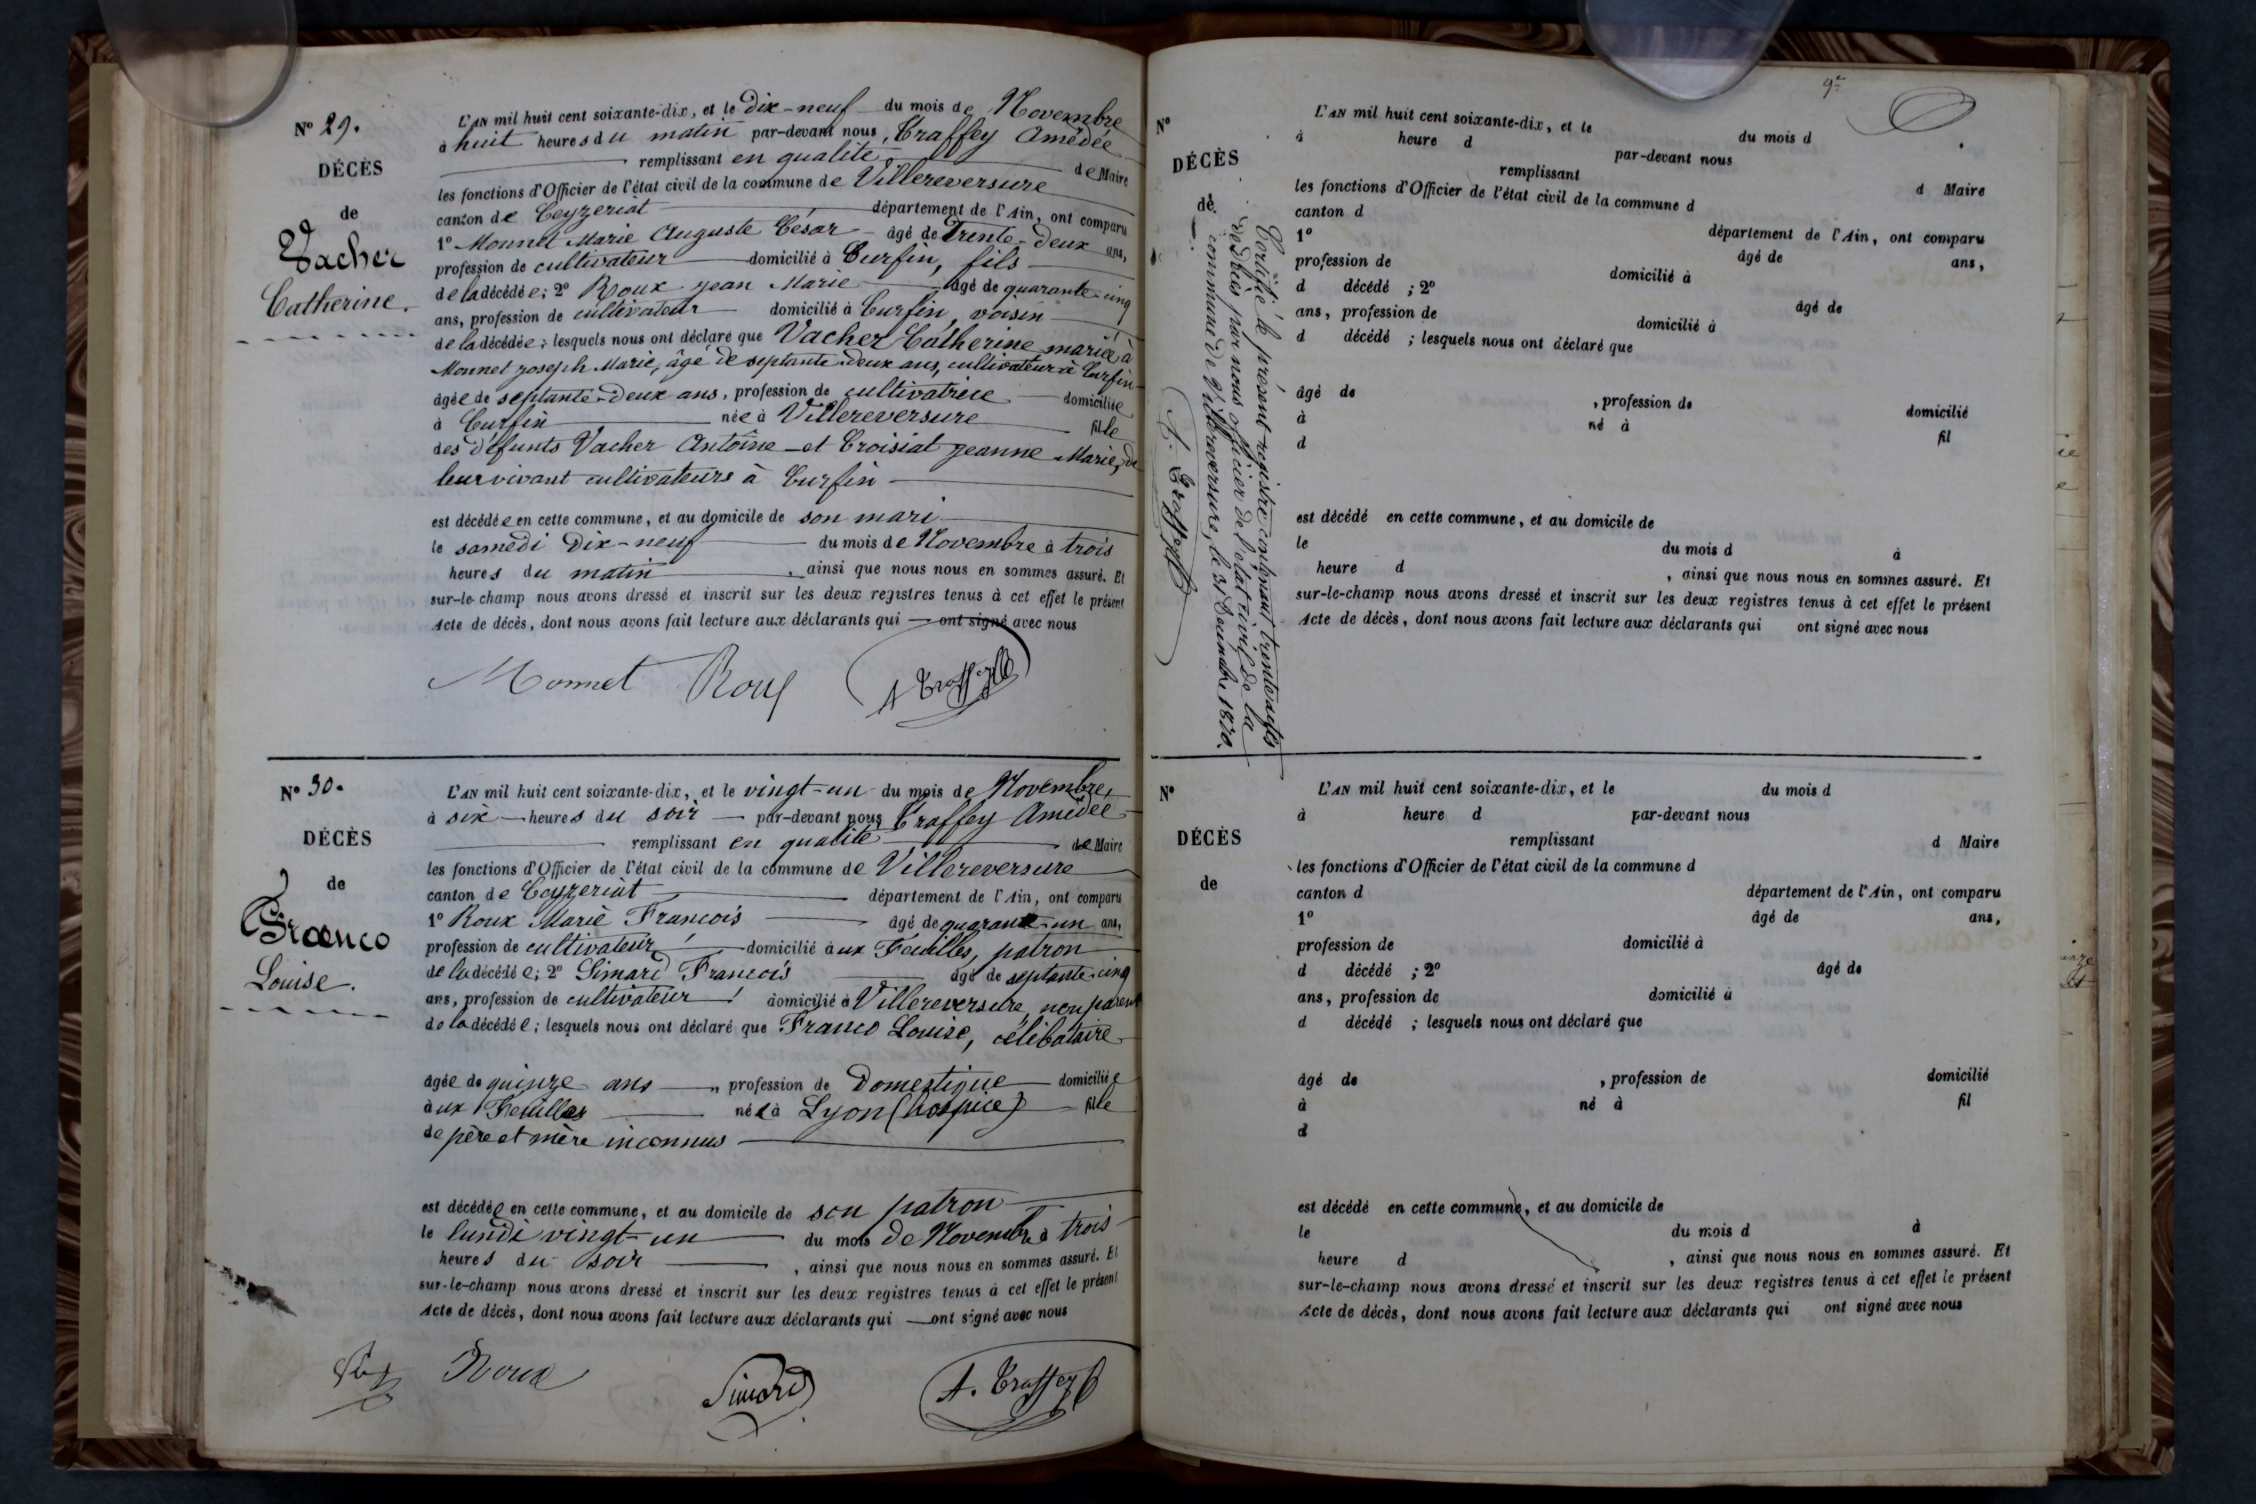 Nº 29.
DÉCÈS
de
Vacher
Catherine.
L'AN mil huit cent soixante-dix, et le Dix-neuf du mois de Novembre
à huit heures du matin par-devant nous, Traffey Amédée
remplissant en qualité de Maire
les fonctions d'Officier de l'état civil de la commune de Villereversure
canton de Ceyzeriat département de l'Ain, ont comparu
1º Monnet Marie Auguste César âgé de Trente-deux ans,
profession de cultivateur domicilié à Curfin, fils
de la décédée; 2º Roux jean Marie âgé de quarante-cinq
ans, profession de cultivateur domicilié à Curfin, voisin
de la décédée; lesquels nous ont déclaré que Vacher Catherine mariée à
Monnet joseph Marie, âgé de septante-deux ans, cultivateur à Curfin
âgée de septante-deux ans, profession de cultivatrice domiciliée
à Curfin née à Villereversure fille
des défunts Vacher Antoine et Croisiat jeanne Marie, de
leur vivant cultivateurs à Curfin
est décédée en cette commune, et au domicile de son mari
le samedi Dix-neuf du mois de Novembre à trois
heures du matin, ainsi que nous nous en sommes assuré. Et
sur-le-champ nous avons dressé et inscrit sur les deux registres tenus à cet effet le présent
Acte de décès, dont nous avons fait lecture aux déclarants qui ont signé avec nous
Monnet Roux A Traffey
Nº 30.
DÉCÈS
de
Franco
Louise.
L'AN mil huit cent soixante-dix, et le vingt-un du mois de Novembre,
à six heures du soir par-devant nous Traffey Amédée
remplissant en qualité de Maire
les fonctions d'Officier de l'état civil de la commune de Villereversure
canton de Ceyzeriat département de l'Ain, ont comparu
1º Roux Marie François âgé de quarante-un ans,
profession de cultivateur domicilié aux Feuilles, patron
de la décédée; 2º Simard François âgé de septante-cinq
ans, profession de cultivateur domicilié à Villereversure, non parent
de la décédée; lesquels nous ont déclaré que Franco Louise, célibataire
âgée de quinze ans, profession de Domestique domiciliée
aux Feuilles née à Lyon (hospice) fille
de père et mère inconnus
est décédée en cette commune, et au domicile de son patron
le lundi vingt-un du mois de Novembre à trois
heures du soir, ainsi que nous nous en sommes assuré. Et
sur-le-champ nous avons dressé et inscrit sur les deux registres tenus à cet effet le présent
Acte de décès, dont nous avons fait lecture aux déclarants qui ont signé avec nous
Roux Simard A. Traffey
9e
Nº
DÉCÈS
de
Certifié le présent registre contenant trente actes
de Décès par nous officier de l'état civil de la
commune de Villereversure, le 31 Décembre 1870.
A. Traffey
L'AN mil huit cent soixante-dix, et le du mois d
à heure d par-devant nous
remplissant d Maire
les fonctions d'Officier de l'état civil de la commune d
canton d département de l'Ain, ont comparu
1º âgé de ans,
profession de domicilié à
d décédé ; 2º âgé de
ans, profession de domicilié à
d décédé ; lesquels nous ont déclaré que
âgé de , profession de domicilié
à né à fil
d
est décédé en cette commune, et au domicile de
le du mois d à
heure d , ainsi que nous nous en sommes assuré. Et
sur-le-champ nous avons dressé et inscrit sur les deux registres tenus à cet effet le présent
Acte de décès, dont nous avons fait lecture aux déclarants qui ont signé avec nous
Nº
DÉCÈS
de
L'AN mil huit cent soixante-dix, et le du mois d
à heure d par-devant nous
remplissant d Maire
les fonctions d'Officier de l'état civil de la commune d
canton d département de l'Ain, ont comparu
1º âgé de ans,
profession de domicilié à
d décédé ; 2º âgé de
ans, profession de domicilié à
d décédé ; lesquels nous ont déclaré que
âgé de , profession de domicilié
à né à fil
d
est décédé en cette commune, et au domicile de
le du mois d à
heure d , ainsi que nous nous en sommes assuré. Et
sur-le-champ nous avons dressé et inscrit sur les deux registres tenus à cet effet le présent
Acte de décès, dont nous avons fait lecture aux déclarants qui ont signé avec nous